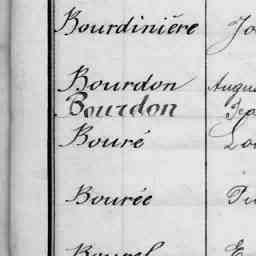 Bourdinière Jo
Bourdon Augu
Bourdon Jea
Bouré Lou
Bourée
Bourel E